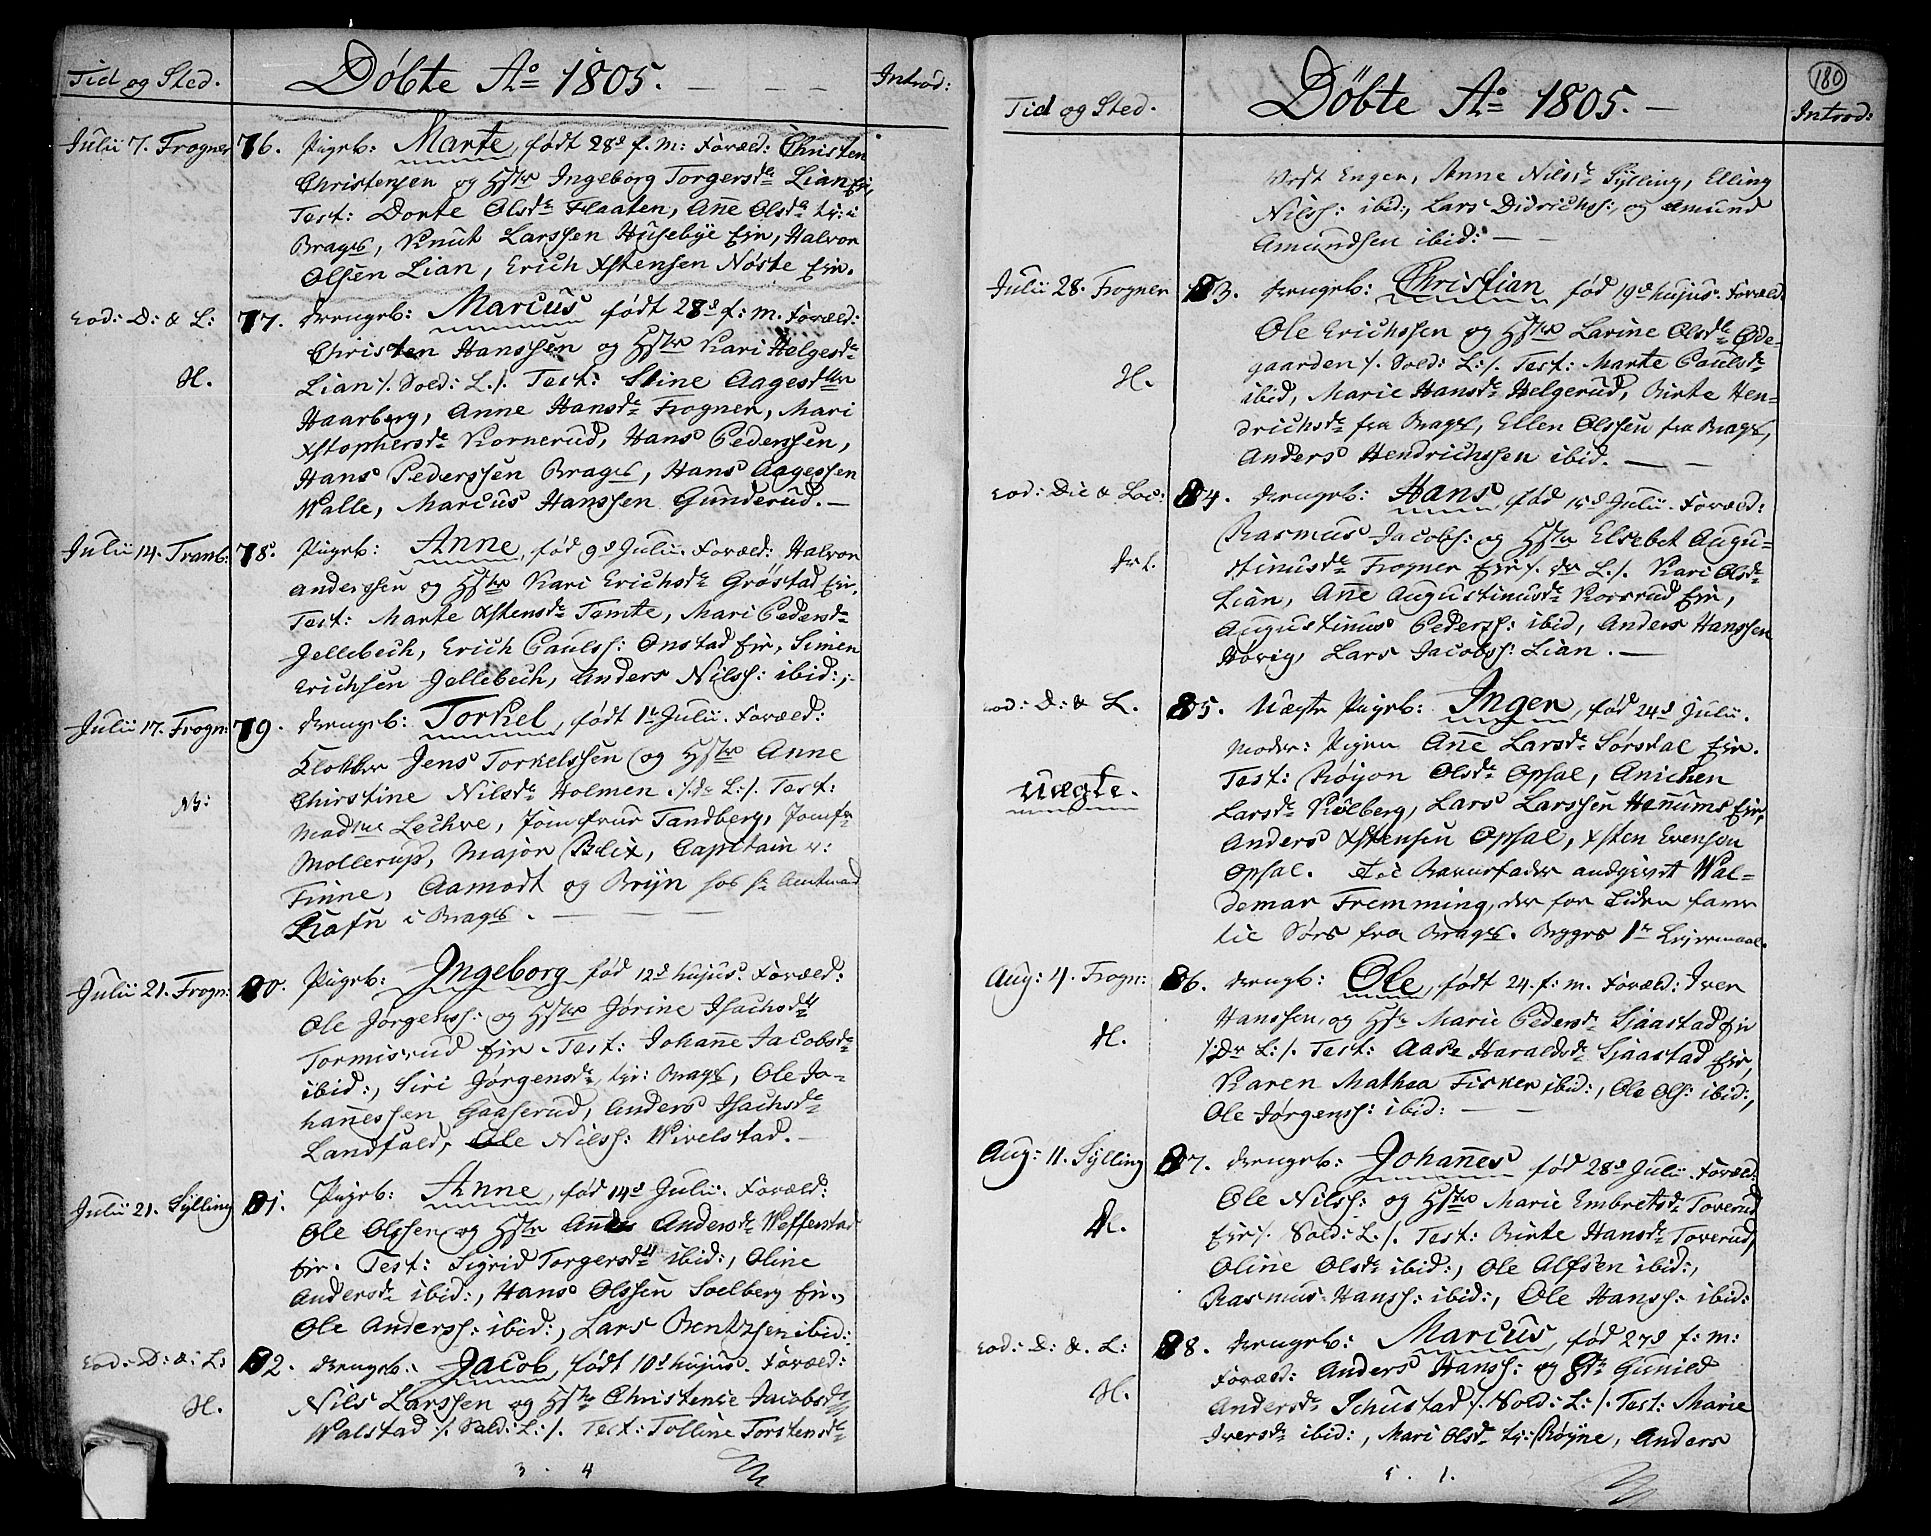 Tid og Sted.
Døbte Aº 1805.
Introd:
Julii 7. Frogner
76. Pigeb: Marte, født 28d f. m: Foræld: Christen
Christensen og Hstr Ingeborg Torgersde Lian Eir,
Test: Dorte Olsde Flaaten, Añe Olsde tj: i
Brages, Knut Larssen Husebye Eir, Halvor
Olsen Lian, Erich Xstensen Nøste Eir.
eod: D: & L:
77. Drengeb: Marcus født 28d f: m. Foræld:
Christen Hanssen og Hstr Kari Helgesde
H.
Lian /. Sold: L: /. Test: Stine Aagesdttr
Haarberg, Anne Hansde Frogner, Mari
Xstophersde Kornerud, Hans Pederssen,
Hans Pederssen Brages, Hans Aagessen
Walle, Marcus Hanssen Gunderud.—
Julii 14. Tranb:
78. Pigeb: Anne, fød 9d Julii. Foræld: Halvor
Anderssen og Hstr Kari Erichsde Grøstad Eir,
Test: Marte Xstensde Temte, Mari Pedersde
Jellebech, Erich Paulss: Onstad Eir, Simen
Erichsen Jellebech, Anders Nilss: ibid:,
Julii 17. Frogn:
79. Drengeb: Torkel, født 1t Julii. Foræld:
Klokker Jens Torkelssen og Hstr Anne
Chirstine Nilsde Holmen ./. dr L: /. Test:
NB:
Madme Lechve, Jomfrur Tandberg, Jomfr
Mollerup, Major Blix, Capitain v:
Finne, Aamodt og Bryn hos Hr Amtmad
i Brages.
Julii 21. Frogn:
80. Pigeb: Ingeborg fød 12d hujus. Foræld:
Ole Jørgenss: og Hstr Jørine Isachsdtr
Tormisrud Eir. Test: Johañe Jacobsde
ibid:, Siri Jørgensde, tjr: Brages, Ole Jo-
hañessen Gaaserud, Anders Isachsde
Landfald, Ole Nilss: Wivelstad.—
Julii 21. Sylling
81. Pigeb: Anne, fød 14d Julii. Foræld:
Ole Olssen og Hstr Andersde Weffenstad
Eir. Test: Sigrid Torgersdtr ibid:, Oline
Andersde ibid:, Hans Olssen Soelberg Eir.,
Ole Anderss: ibid:, Lars Bentzsen ibid:
eod: D: & L:
82. Drengeb: Jacob, født 10d hujus. Foræld:
H.
Nils Larssen og Hstr Christense Jacobsde
Walstad /. Sold: L: /. Test: Tolline Torstensde
3 . 4
180
Tid og Sted.
Døbte Aº 1805.—
Introd:
Vest Engen, Anne Nilsde Sylling, Elling
Nilss: ibid:, Lars Didrichss:, og Amund
Amundsen ibid:
Julii 28. Frogner
83. Drengeb: Christian fød 19d hujus. Foræld
Ole Erichssen og Hstr Larine Olsde Øde-
H.
gaarden /. Sold: L: /. Test: Marte Paulsde
ibid, Marie Hansde Helgerud, Birte Hen-
drichsde fra Brages, Ellen Olssen fra Brages,
Anders Hendrichssen ibid.
eod: Die & Loc:
84. Drengeb: Hans, fød 15d Julii. Foræld:
Rasmus Jacobs: og Hstr Elsebet Augu-
Dr L.
stinusde Frogner Eir /. dr L: /. Kari Olsde
Lian, Añe Augustinusde Korsrud Eir,
Augustinus Pederss: ibid, Anders Hanssen
Hørig, Lars Jacobss: Lian.—
eod: D: & L.
85. Uægte Pigeb: Inger, fød 24d Julii.
Moder: Pigen Añe Larsde Sørsdal Eir.
Uægte.
Test: Røijon Olsde Opsal, Anichen
Larsde Kølberg, Lars Larssen Henums Eir,
Anders Xstensen Opsal, Xsten Evensen
Opsal. Til Barnefader angivet Wal-
demar Fremming, der for Tiden farer
til Søes fra Brages. Begges 1te Leiermaal.
Aug: 4. Frogn:
86. Drengb: Ole, født 24. f: m. Foræld: Iver
H.
Hanssen, og Hstr Marie Pedersde Sjaastad Eir
/: Dr L: /. Test: Aase Haraldsde Sjaastad Eir,
Karen Mathea Fisker ibid:, Ole Ols: ibid:,
Ole Jørgenss: ibid:
Aug: 11. Sylling
87. Drengeb: Johañes fød 28d Julii. Foræld:
Ole Nilss: og Hstr Marie Embretsde Toverud
H.
Eir /. Sold: L: /. Test: Birte Hansde Toverud,
Oline Olsde ibid:, Ole Alfsen ibid:,
Rasmus Hanss: ibid:, Ole Hanss: ibid:
eod: D: &. L:
88. Drengeb: Marcus, fød 27d f: m:
Foræld: Anders Hanss: og Hstr Gunild
H.
Andersde Schustad /. Sold: L: /. Test: Marie
Iversde ibid:, Mari Olsde tj: Røyne, Anders
5 . 1.